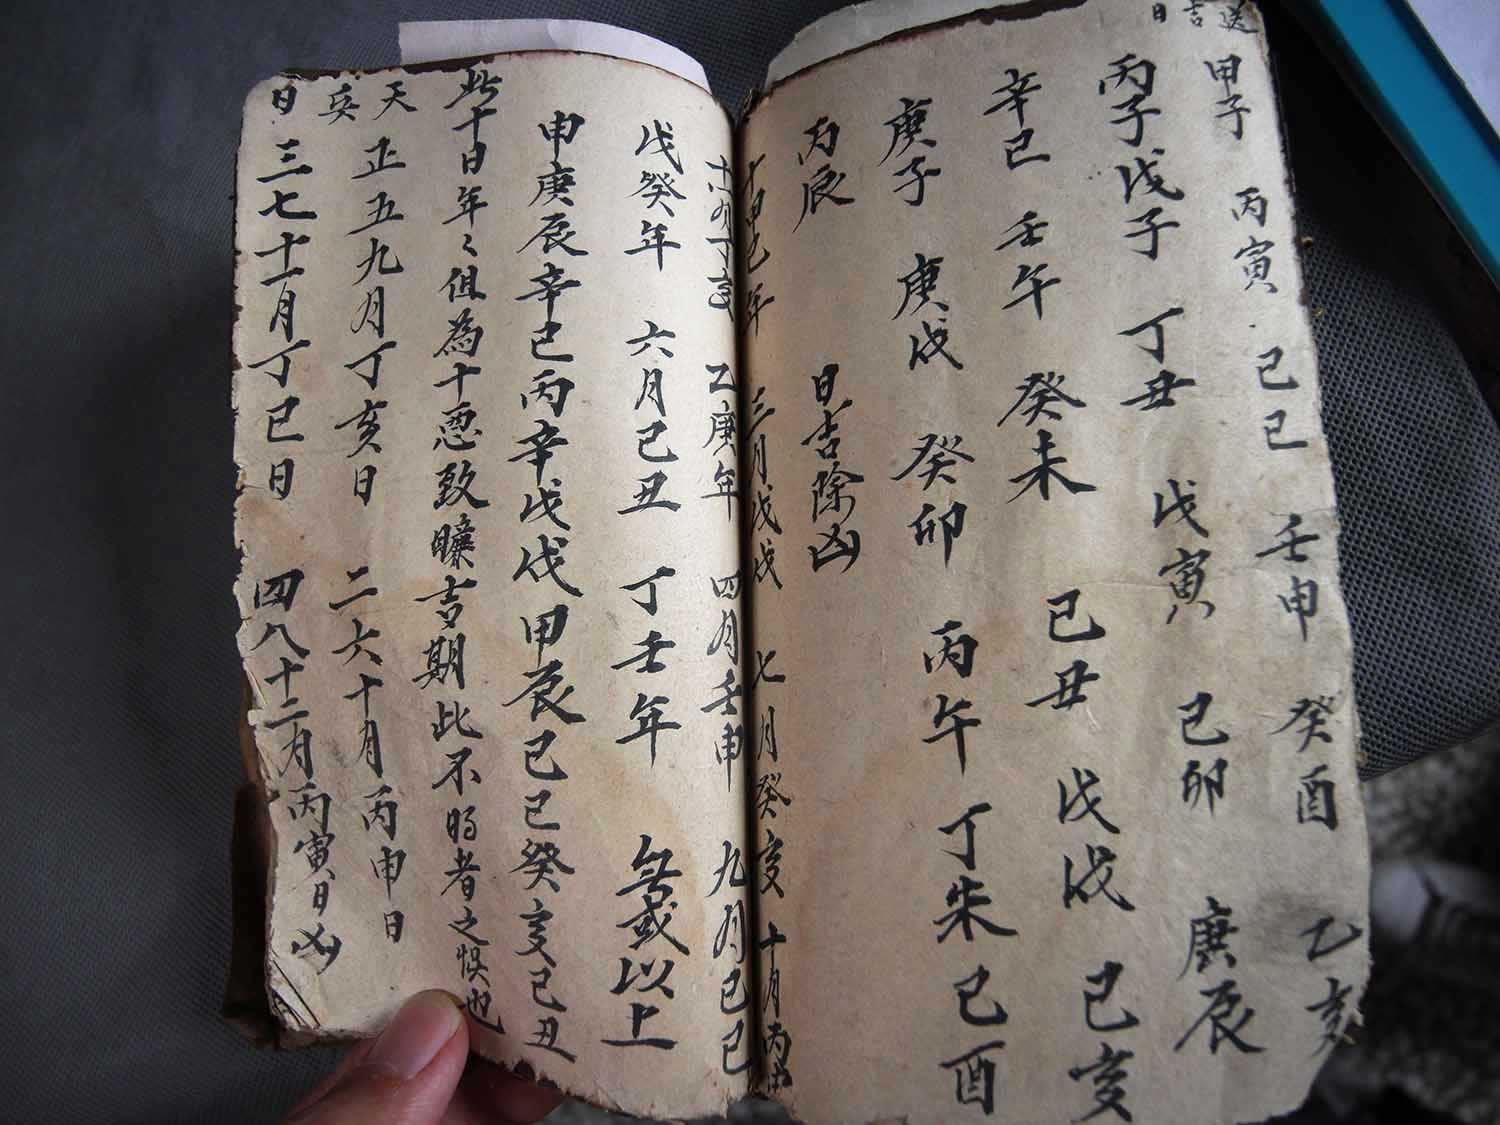 送吉日
甲子 丙寅 己巳 壬申 癸酉 乙亥
丙子 戊子 丁丑 戊寅 己卯 庚辰
辛巳 壬午 癸未 己丑 戊戌 己亥
庚子 庚戌 癸卯 丙午 丁未 己酉
丙辰 日吉除凶
甲己年 三月戊戌 七月癸亥 十月丙申
十一月丁亥 乙庚年 四月壬申 九月乙巳
戊癸年 六月己丑 丁壬年 無或以上
申庚辰辛巳丙辛戊戌甲辰己巳癸亥己丑
此十日年々但為十恶致曠吉期此不明者之惧也
天兵日
正五九月丁亥日 二六十月丙申日
三七十一月丁巳日 四八十二月丙寅日凶